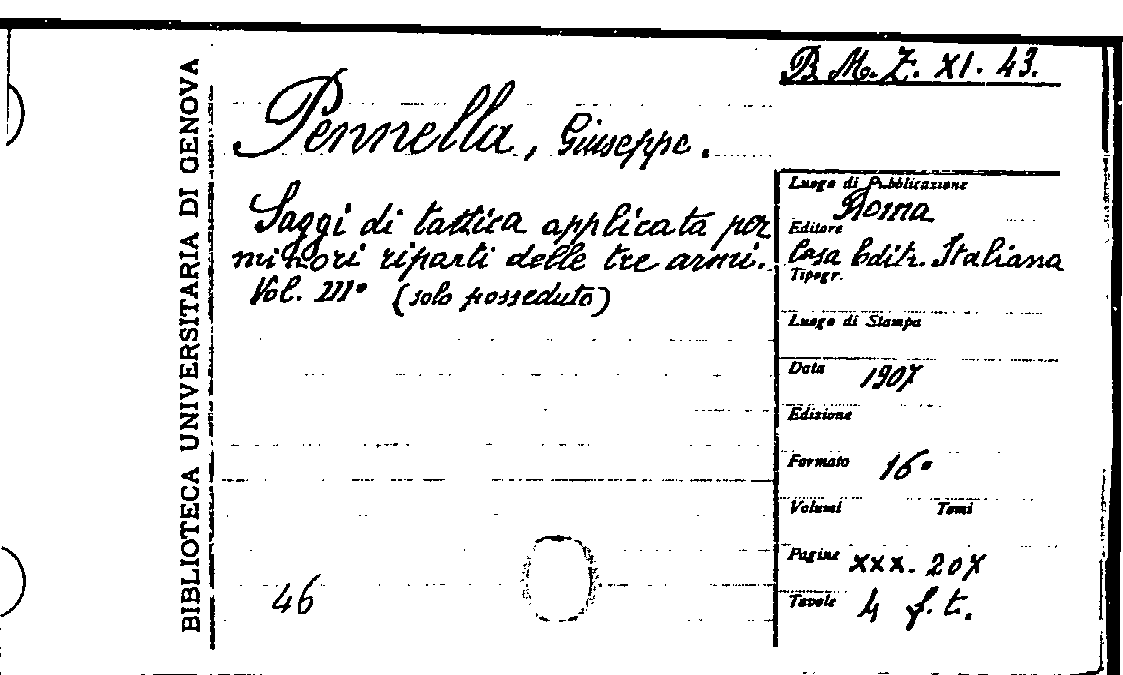 BIBLIOTECA UNIVERSITARIA DI GENOVA
B. M. Z. XI. 43.
Pennella, Giuseppe.
Saggi di tattica applicata per
minori riparti delle tre armi.
Vol. III° (solo posseduto)
46
Luogo di Pubblicazione
Roma
Editore
Casa Editr. Italiana
Tipogr.
Luogo di Stampa
Data 1907
Edizione
Formato 16°
Volumi Tomi
Pagine XXX. 207
Tavole 4 f. t.